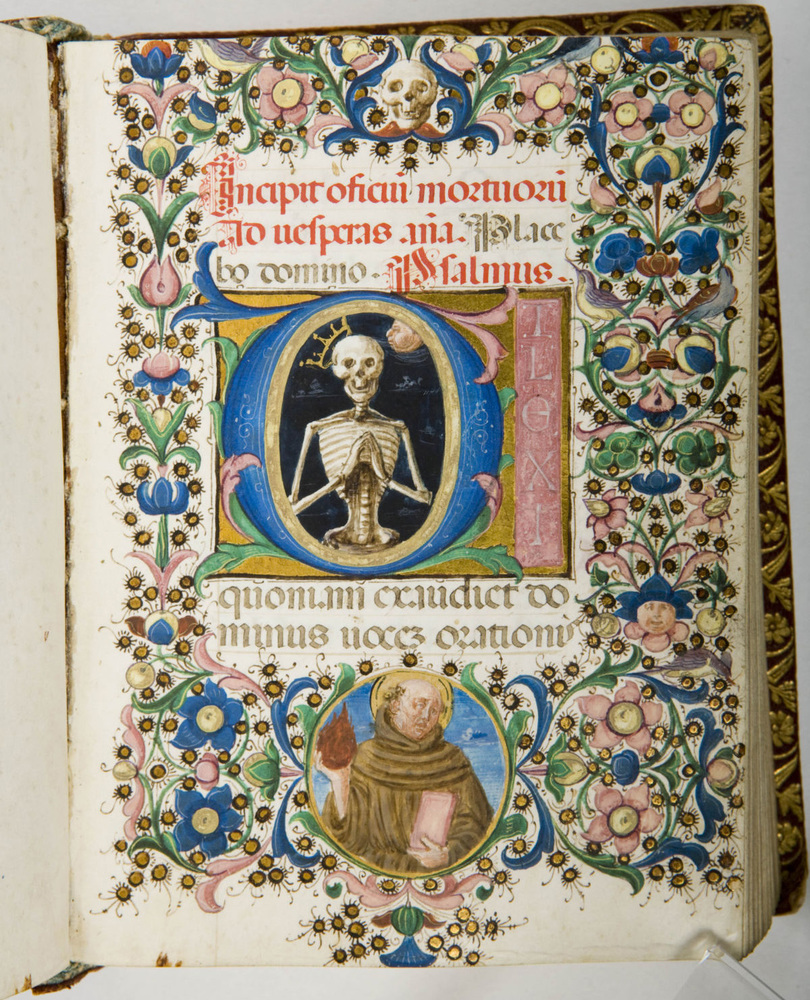 Incipit oficiū mortuorū
Ad uesperas . aña. Place
bo domino . Psalmus .
DILEXI
quoniam exaudiet do
minus uocez orationi